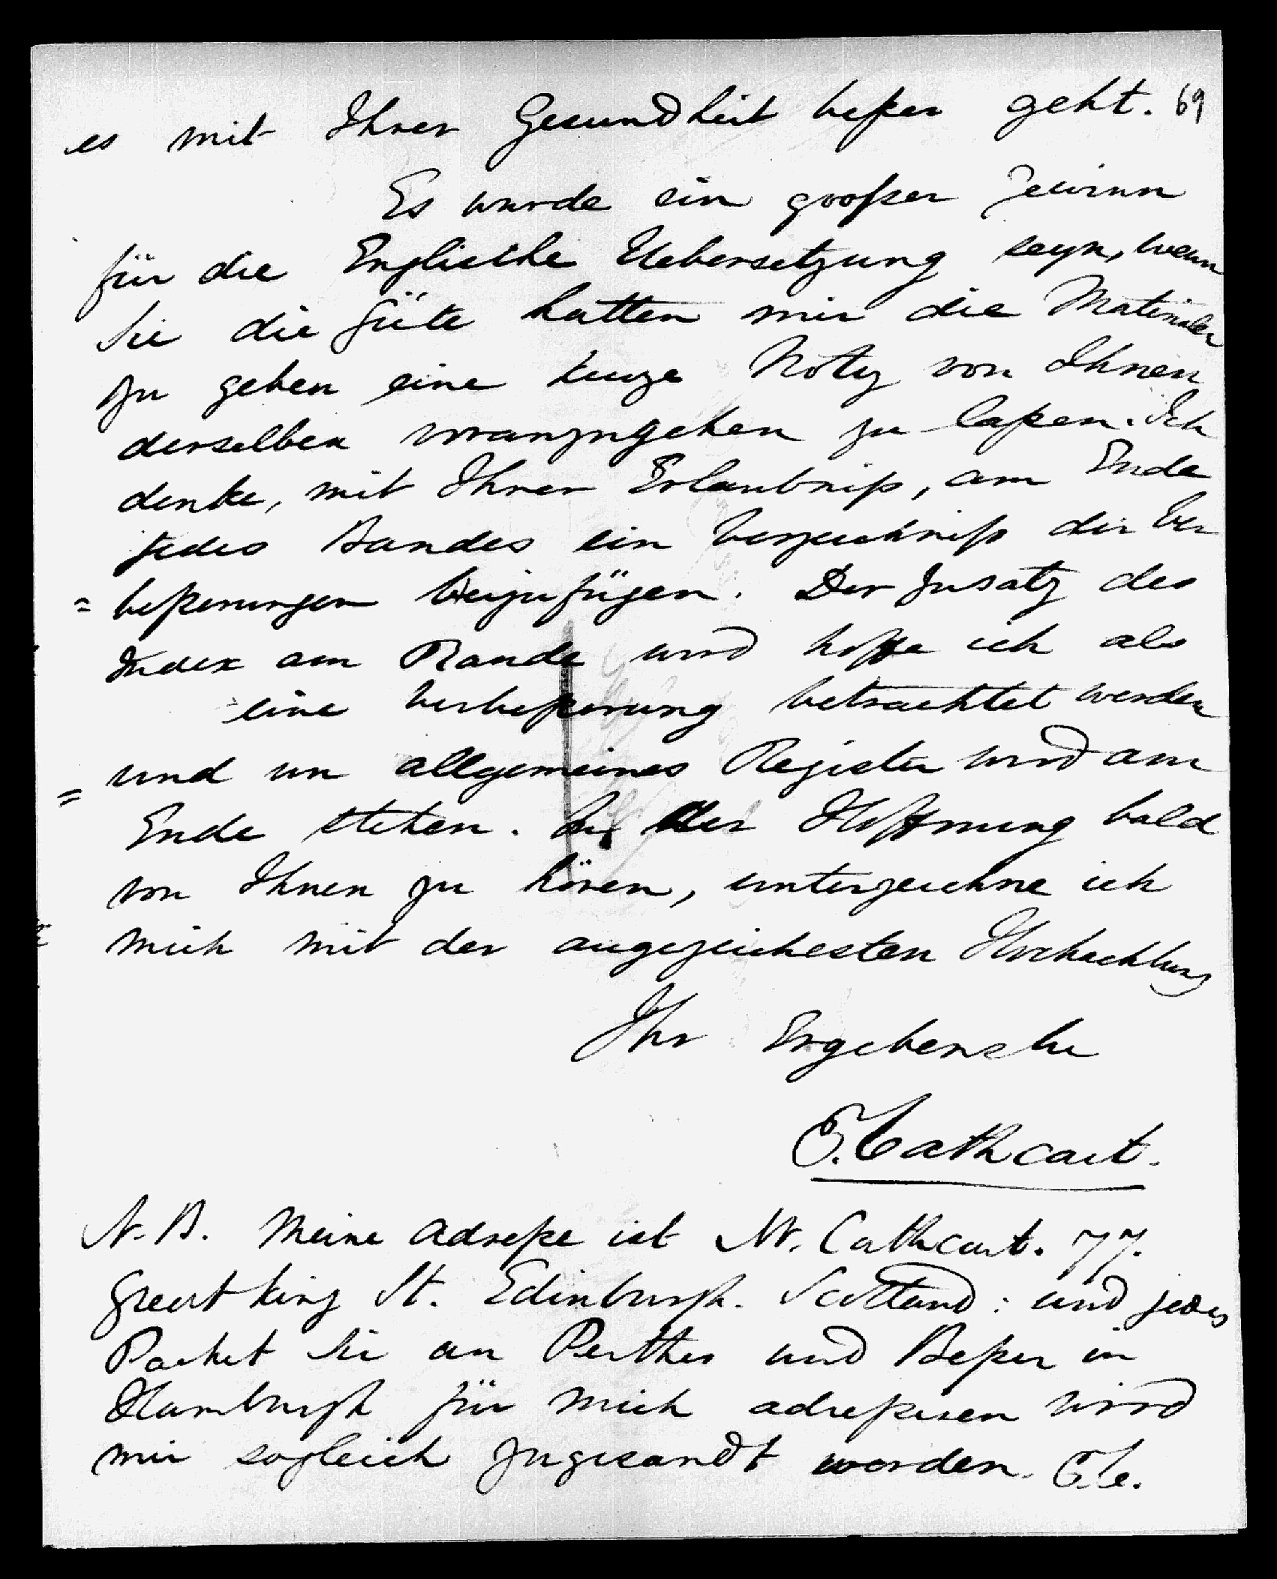 es mit Ihrer Gesundheit beßer geht. 69
Es wurde ein großer Gewinn
für die Englische Uebersetzung seyn, wenn
Sie die Güte hatten mir die Materialen
zu geben eine kurze Notiz von Ihnen
derselben voranzugehen zu laßen. Ich
denke, mit Ihrer Erlaubniß, am Ende
jedes Bandes ein Verzeichniß der Ver
=beßerungen beizufügen. Der Zusatz des
Index am Rande wird hoffe ich als
eine Verbeßerung betrachtet werden
= und un allgemeines Register wird am
Ende stehen. In der Hoffnung bald
von Ihnen zu hören, unterzeichne ich
mich mit der ausgezeichesten Hochachtung
Ihr Ergebenster
E. Cathcart.
N.B. Meine Adreße ist Mr. Cathcart. 77.
Great King St. Edinburgh. Scotland: und jedes
Packet Sie an Perthes und Beßer in
Hamburgh für mich adreßieren wird
mir sogleich zugesandt werden. E.C.